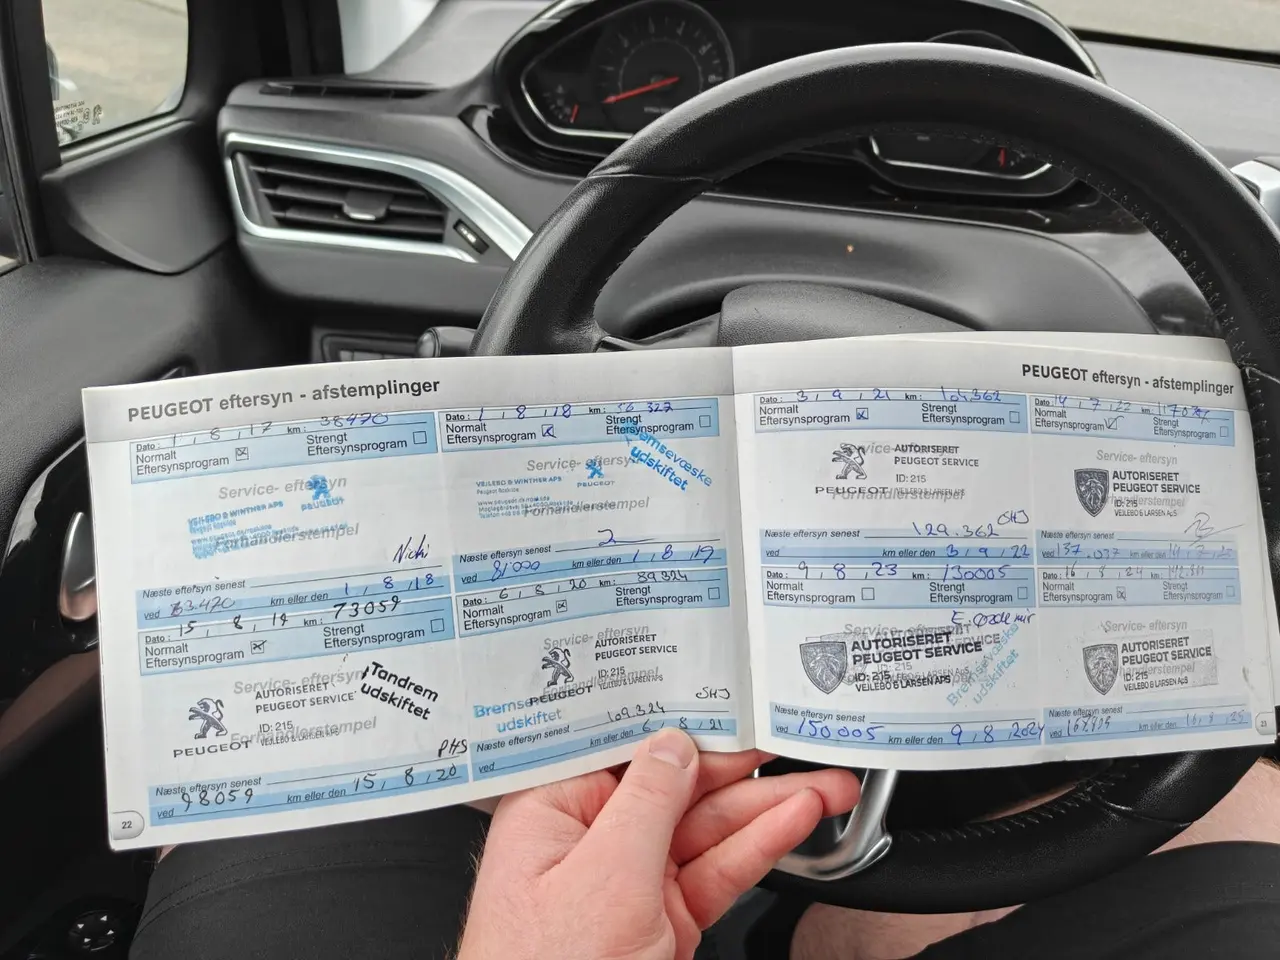 PEUGEOT eftersyn - afstemplinger
Dato : 1 , 8 , 17 km : 38470
Normalt Eftersynsprogram
Strengt Eftersynsprogram
Service- eftersyn
VEJLEBO & WINTHER APS
PEUGEOT
Forhandlerstempel
Nicki
Næste eftersyn senest
ved 63.470 km eller den 1 , 8 , 18
Dato : 1 , 8 , 18 km : 56 327
Normalt Eftersynsprogram
Strengt Eftersynsprogram
Bremsevæske udskiftet
Service- eftersyn
VEJLEBO & WINTHER APS
PEUGEOT
Forhandlerstempel
Næste eftersyn senest
ved 81000 km eller den 1 , 8 , 19
Dato : 15 , 8 , 19 km : 73059
Normalt Eftersynsprogram
Strengt Eftersynsprogram
Service- eftersyn
AUTORISERET
PEUGEOT SERVICE
Tandrem udskiftet
ID: 215
Forhandlerstempel
PEUGEOT VEJLEBO & LARSEN ApS
PHS
Næste eftersyn senest
ved 98059 km eller den 15 , 8 , 20
Dato : 6 , 8 , 20 km : 89324
Normalt Eftersynsprogram
Strengt Eftersynsprogram
Service- eftersyn
AUTORISERET
PEUGEOT SERVICE
ID: 215
Forhandlerstempel
PEUGEOT VEJLEBO & LARSEN ApS
Bremsevæske udskiftet
SHJ
Næste eftersyn senest 109.324
ved km eller den 6 , 8 , 21
22
PEUGEOT eftersyn - afstemplinger
Dato : 3 , 9 , 21 km : 104.362
Normalt Eftersynsprogram
Strengt Eftersynsprogram
Service- eftersyn
AUTORISERET
PEUGEOT SERVICE
ID: 215
PEUGEOT VEJLEBO & LARSEN ApS
Forhandlerstempel
SHJ
Næste eftersyn senest 129.362
ved km eller den 3 , 9 , 22
Dato : 14 , 7 , 22 km :
Normalt Eftersynsprogram
Strengt Eftersynsprogram
Service- eftersyn
AUTORISERET
PEUGEOT SERVICE
Forhandlerstempel
ID: 215
VEJLEBO & LARSEN ApS
Næste eftersyn senest
ved 137.037 km eller den
Dato : 9 , 8 , 23 km : 130005
Normalt Eftersynsprogram
Strengt Eftersynsprogram
Service- eftersyn
AUTORISERET
PEUGEOT SERVICE
ID: 215
VEJLEBO & LARSEN ApS
Bremsevæske udskiftet
Næste eftersyn senest
ved 150005 km eller den 9 , 8 , 2024
Dato : 16 , 8 , 24 km :
Normalt Eftersynsprogram
Strengt Eftersynsprogram
Service- eftersyn
AUTORISERET
PEUGEOT SERVICE
ID: 215
Forhandlerstempel
VEJLEBO & LARSEN ApS
Næste eftersyn senest
ved km eller den 16 , 8 , 25
23